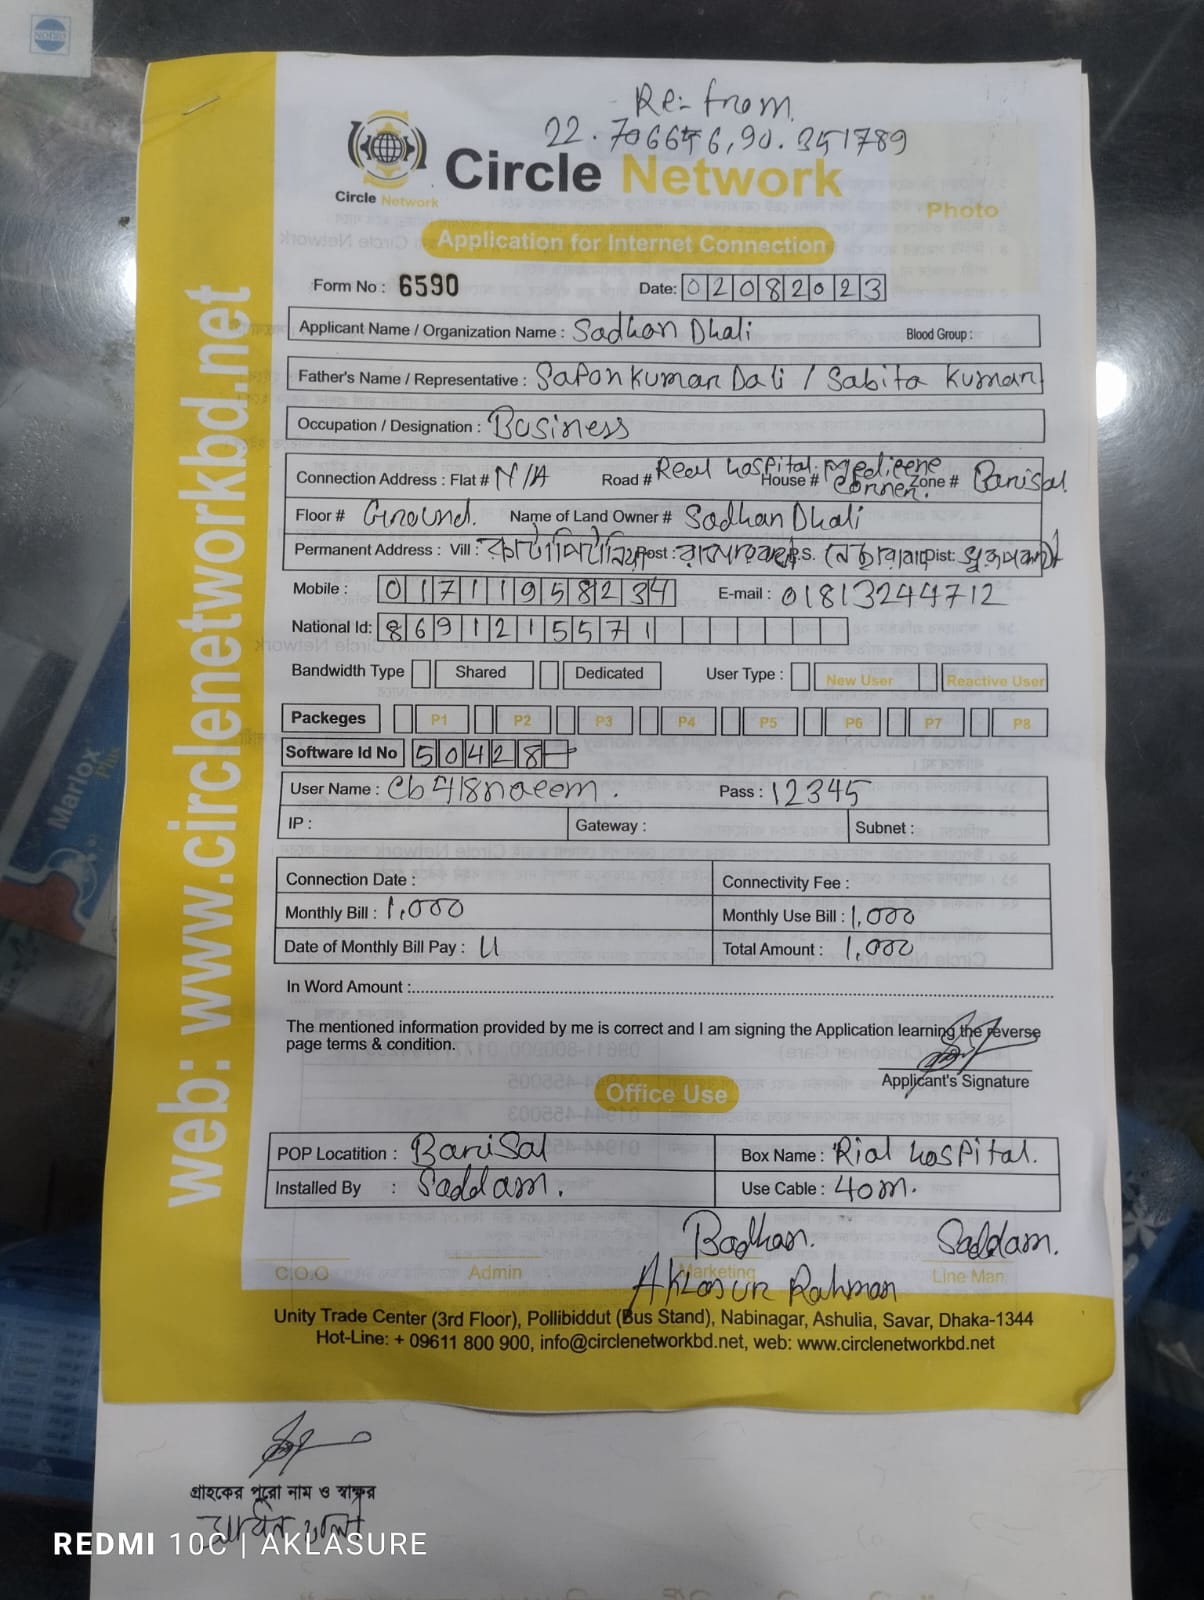 Re:- from.
22.706656,90.351789
Circle Network
Circle Network
Photo
Application for Internet Connection
Form No : 6590 Date: 02082023
Applicant Name / Organization Name : Sadhan Dhali Blood Group :
Father's Name / Representative : Sapon Kumar Dali / Sabita Kumari
Occupation / Designation : Business
Connection Address : Flat # N/A Road # Real hospital. House # Medicene Corner. Zone # Barisal
Floor # Ground. Name of Land Owner # Sadhan Dhali
Permanent Address : Vill : Post : P.S. Dist:
Mobile : 01711958234 E-mail : 01813244712
National Id: 8691215571
Bandwidth Type Shared Dedicated User Type : New User Reactive User
Packeges P1 P2 P3 P4 P5 P6 P7 P8
Software Id No 50428
User Name : cb418naeem. Pass : 12345
IP : Gateway : Subnet :
Connection Date : Connectivity Fee :
Monthly Bill : 1,000 Monthly Use Bill : 1,000
Date of Monthly Bill Pay : Total Amount : 1,000
In Word Amount :
The mentioned information provided by me is correct and I am signing the Application learning the reverse
page terms & condition.
Applicant's Signature
Office Use
POP Locatition : Barisal Box Name : Rial hospital.
Installed By : Saddam. Use Cable : 40m.
Badhan. Saddam.
C.O.O Admin Marketing Line Man
Aklasur Rahman
Unity Trade Center (3rd Floor), Pollibiddut (Bus Stand), Nabinagar, Ashulia, Savar, Dhaka-1344
Hot-Line: + 09611 800 900, info@circlenetworkbd.net, web: www.circlenetworkbd.net
web: www.circlenetworkbd.net
Marlox Plus
গ্রাহকের পুরো নাম ও স্বাক্ষর
REDMI 10C | AKLASURE